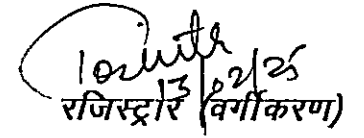 13/02/25
रजिस्ट्रार (वर्गीकरण)